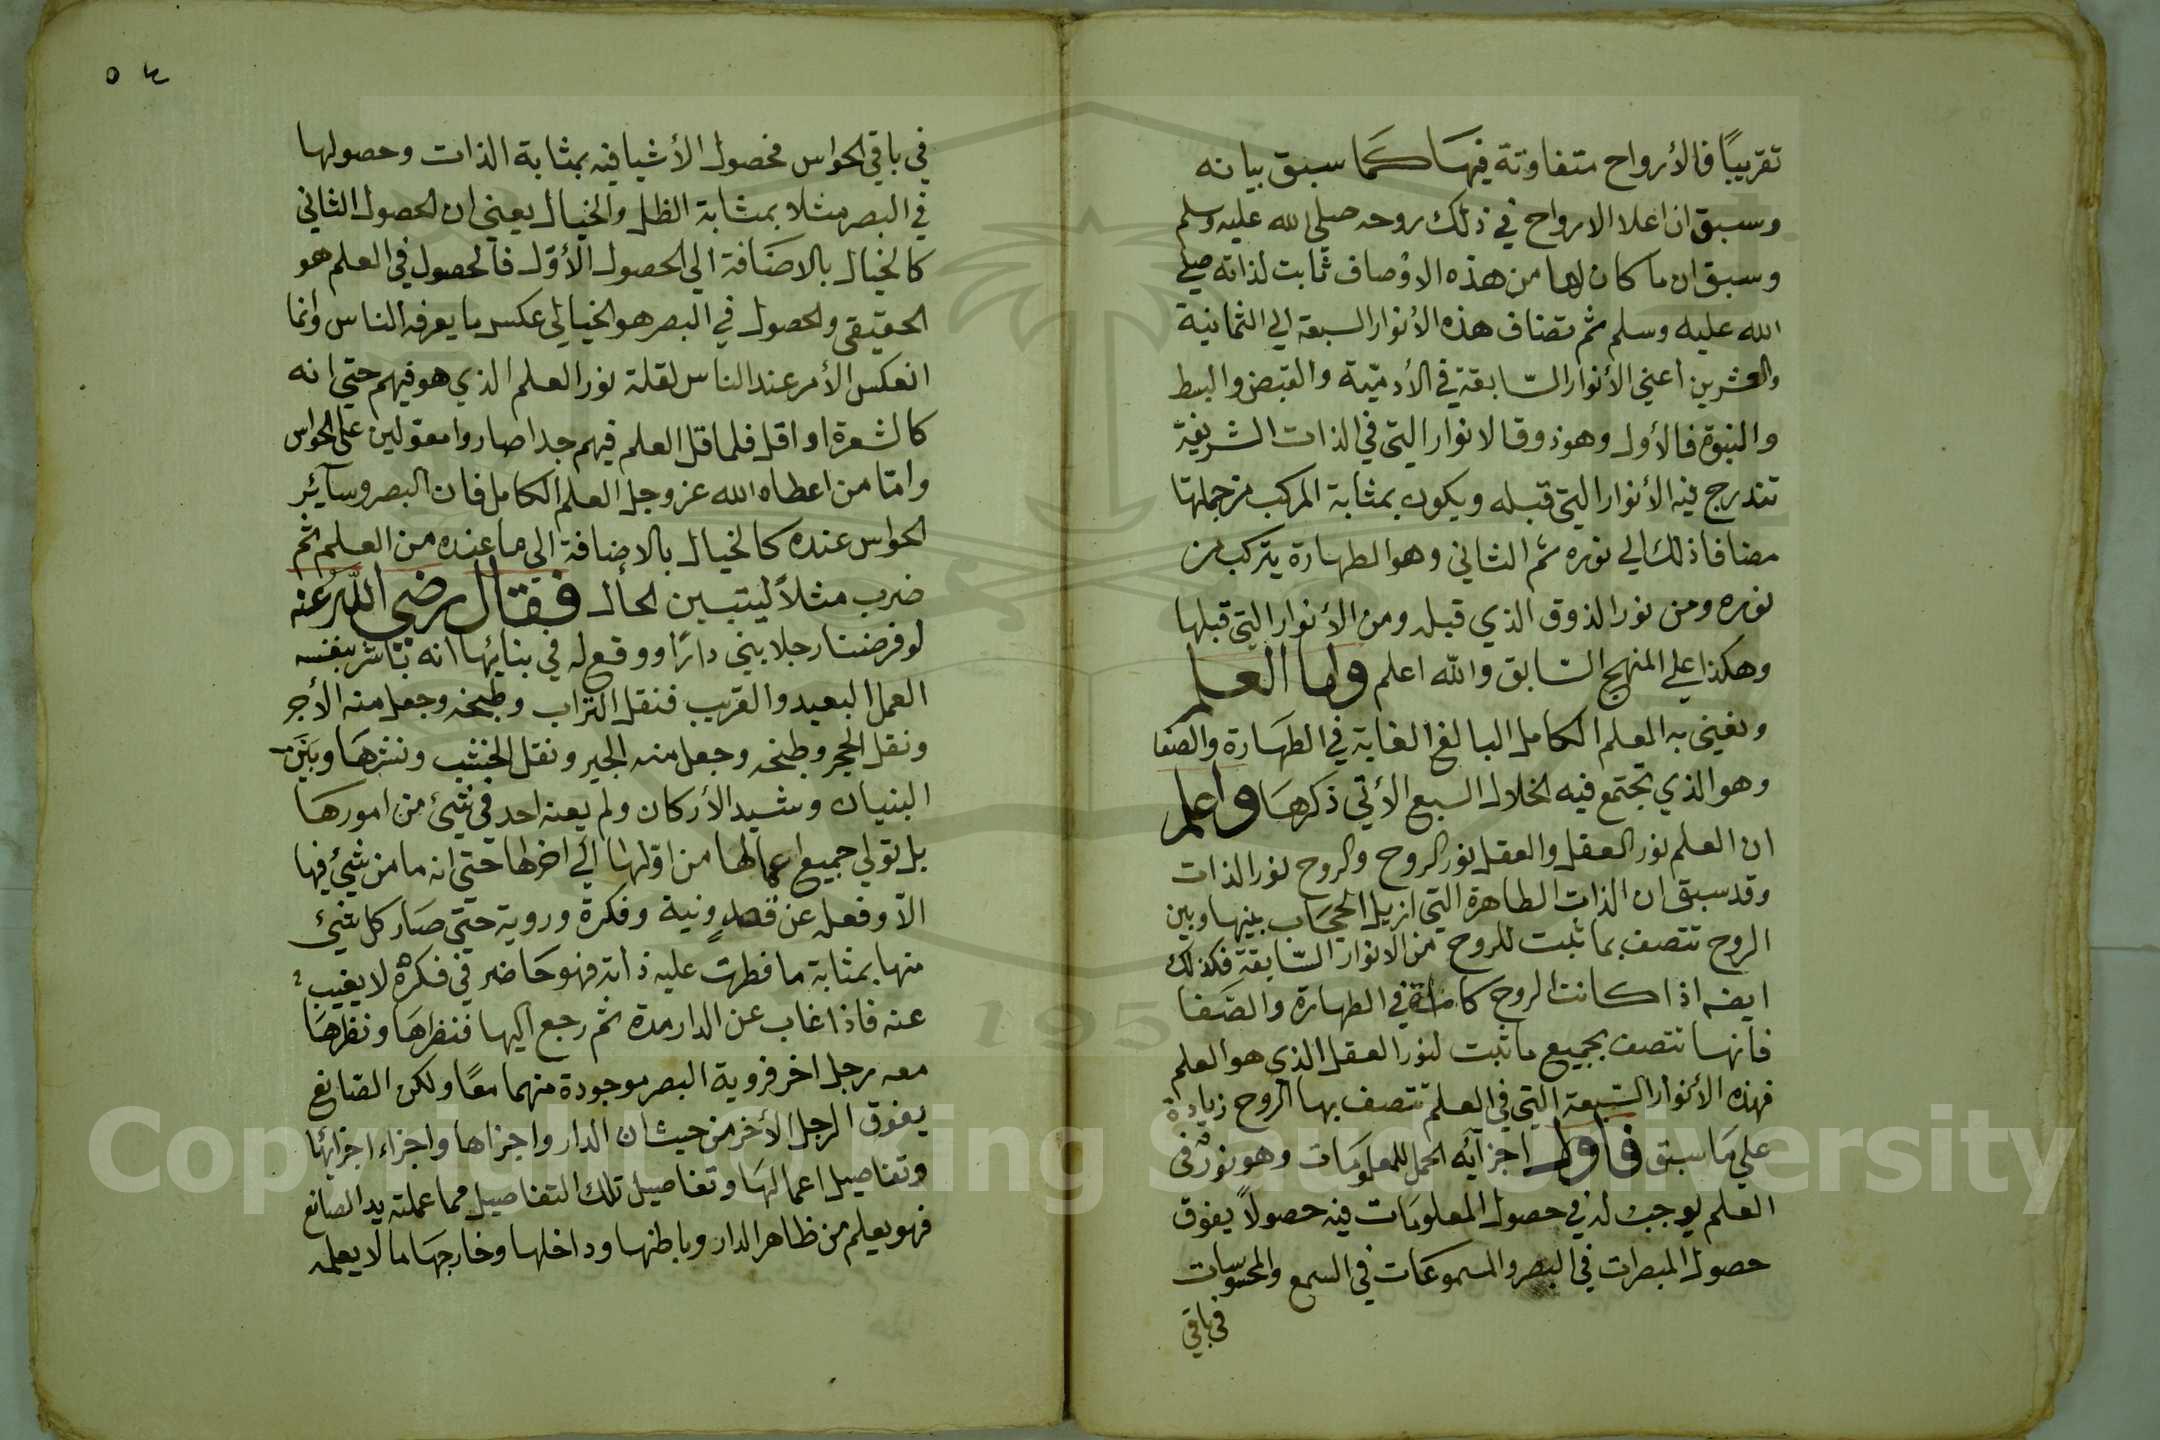 تقريبًا فالأرواح متفاوتة فيها كما سبق بيانه
وسبق ان اعلا الارواح في ذلك روحه صلى الله عليه وسلم
وسبق ان ما كان لها من هذه الاوصاف ثابت لذاته صلي
الله عليه وسلم ثم تضاف هذه الأنوار السبعة الي الثمانية
والعشرين اعني الأنوار السابقة في الأدمية والقبض والبسط
والنبوة فالأول وهو ذوق الانوار التي في الذات الشريفة
تندرج فيه الأنوار التي قبله ويكون بمثابة المركب من جملتها
مضافا ذلك الي نوره ثم الثاني وهو الطهارة يتركب من
نوره ومن نور الذوق الذي قبله ومن الأنوار التي قبلها
وهكذا علي المنهج السابق والله اعلم واما العلم
ونعني به العلم الكامل البالغ الغاية في الطهارة والصفا
وهو الذي تجتمع فيه الخلال السبع الأتي ذكرها واعلم
ان العلم نور العقل والعقل نور الروح والروح نور الذات
وقد سبق ان الذات الطاهرة التي ازيل الحجاب بينها وبين
الروح تتصف بما ثبت للروح من الانوار السابقة فكذلك
ايضه اذا كانت الروح كاملة في الطهارة والصفا
فانها تتصف بجميع ما ثبت لنور العقل الذي هو العلم
فهذه الأنوار السبعة التي في العلم تتصف بها الروح زيادة
علي ما سبق فاول اجزائه الحمل للمعلومات وهو نور في
العلم يوجب له في حصول المعلومات فيه حصولاً يفوق
حصول المبصرات في البصر والمسموعات في السمع والمحسوسات
في باقي
٥٤
في باقي الحواس فحصول الأشيا فيه بمثابة الذات وحصولها
في البصر مثلا بمثابة الظل والخيال يعني ان الحصول الثاني
كالخيال بالاضافة الي الحصول الأول فالحصول في العلم هو
الحقيقي والحصول في البصر هو الخيالي عكس ما يعرفه الناس وانما
انعكس الأمر عند الناس لقلة نور العلم الذي هو فيهم حتي انه
كالشعرة او اقل فلما قل العلم فيهم جدا صاروا معولين علي الحواس
وامّا من اعطاه الله عز وجل العلم الكامل فان البصر وسآئر
الحواس عنده كالخيال بالاضافة الي ما عنده من العلم ثم
ضرب مثلاً ليتبين الحال فقال رضي الله عنه
لو فرضنا رجلا يبني دارًا ووقع له في بنائها انه باشر بنفسه
العمل البعيد والقريب فنقل التراب وطبخه وجعل منه الأجر
ونقل الحجر وطبخه وجعل منه الجير ونقل الخشب ونشرها وبني
البنيان وشيد الأركان ولم يعنه احد في شيئ من امورها
بل تولي جميع اعمالها من اولها الي اخرها حتي انه ما من شيئ فيها
الا وفعله عن قصدٍ ونية وفكرة وروية حتي صار كل شيئ
منها بمثابة ما فطرت عليه ذاته فهو حاضر في فكره لا يغيب
عنه فاذا غاب عن الدار مدة ثم رجع اليها فنظرها ونظرها
معه رجل اخر فروية البصر موجودة منهما معًا ولكن الصانع
يفوق الرجل الأخر من حيث ان الدار واجزاها واجزاء اجزائها
وتفاصيل اعمالها وتفاصيل تلك التفاصيل مما عملته يد الصانع
فهو يعلم من ظاهر الدار وباطنها وداخلها وخارجها ما لا يعلمه
Copyright © King Saud University
195